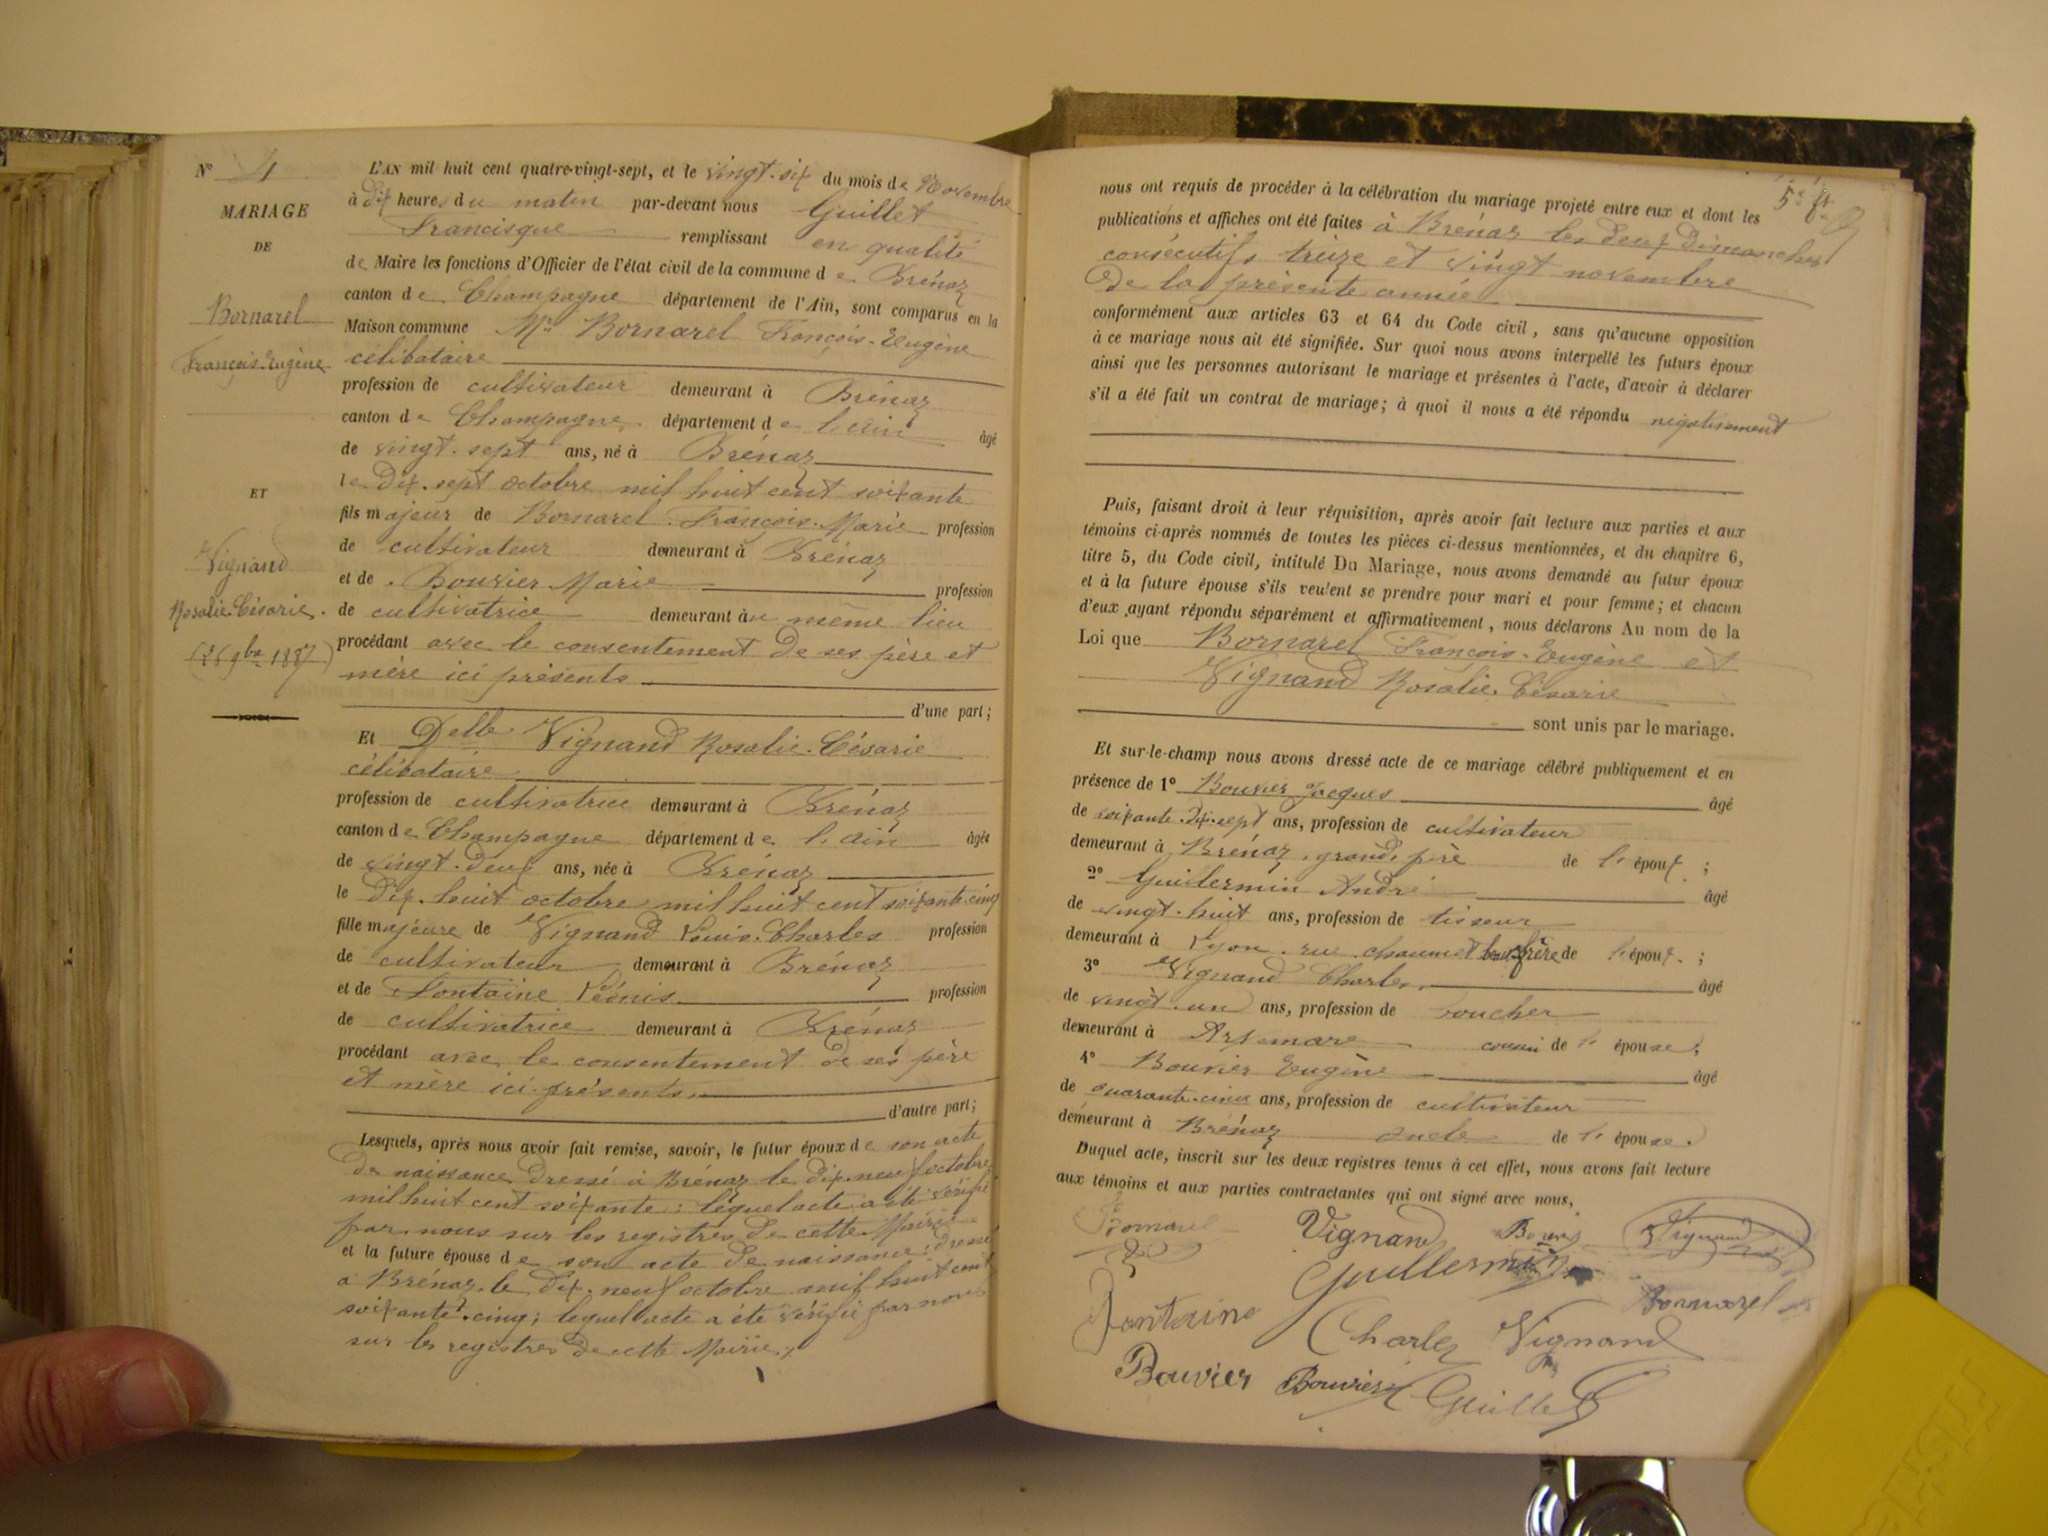 N° 4
MARIAGE
DE
Bornarel
François-Eugène
ET
Vignand
Rosalie-Césarie.
(26 9bre 1887)
L'AN mil huit cent quatre-vingt-sept, et le vingt-six du mois de Novembre
à dix heures du matin par-devant nous Guillet
Francisque remplissant en qualité
de Maire les fonctions d'Officier de l'état civil de la commune de Brénaz
canton de Champagne département de l'Ain, sont comparus en la
Maison commune Mr Bornarel François-Eugène
célibataire
profession de cultivateur demeurant à Brénaz
canton de Champagne département de l'Ain âgé
de vingt-sept ans, né à Brénaz
le dix-sept octobre mil huit cent soixante
fils majeur de Bornarel François-Marie profession
de cultivateur demeurant à Brénaz
et de Bouvier Marie profession
de cultivatrice demeurant au même lieu
procédant avec le consentement de ses père et
mère ici présents
d'une part;
Et Delle Vignand Rosalie-Césarie
célibataire
profession de cultivatrice demeurant à Brénaz
canton de Champagne département de l'Ain âgée
de vingt-deux ans, née à Brénaz
le dix-huit octobre mil huit cent soixante-cinq
fille majeure de Vignand Louis-Charles profession
de cultivateur demeurant à Brénaz
et de Fontaine Léonis profession
de cultivatrice demeurant à Brénaz
procédant avec le consentement de ses père
et mère ici présents.
d'autre part;
Lesquels, après nous avoir fait remise, savoir, le futur époux de son acte
de naissance dressé à Brénaz le dix-neuf octobre
mil huit cent soixante; lequel acte a été vérifié
par nous sur les registres de cette Mairie
et la future épouse de son acte de naissance dressé
à Brénaz le dix-neuf octobre mil huit cent
soixante-cinq; lequel acte a été vérifié par nous
sur les registres de cette Mairie,
nous ont requis de procéder à la célébration du mariage projeté entre eux et dont les
publications et affiches ont été faites à Brénaz les deux Dimanches
consécutifs treize et vingt novembre
de la présente année
conformément aux articles 63 et 64 du Code civil, sans qu'aucune opposition
à ce mariage nous ait été signifiée. Sur quoi nous avons interpellé les futurs époux
ainsi que les personnes autorisant le mariage et présentes à l'acte, d'avoir à déclarer
s'il a été fait un contrat de mariage; à quoi il nous a été répondu négativement
Puis, faisant droit à leur réquisition, après avoir fait lecture aux parties et aux
témoins ci-après nommés de toutes les pièces ci-dessus mentionnées, et du chapitre 6,
titre 5, du Code civil, intitulé Du Mariage, nous avons demandé au futur époux
et à la future épouse s'ils veulent se prendre pour mari et pour femme; et chacun
d'eux ayant répondu séparément et affirmativement, nous déclarons Au nom de la
Loi que Bornarel François-Eugène et
Vignand Rosalie-Césarie
sont unis par le mariage.
Et sur-le-champ nous avons dressé acte de ce mariage célébré publiquement et en
présence de 1° Bouvier Jacques âgé
de soixante-dix-sept ans, profession de cultivateur
demeurant à Brénaz, grand-père de l'époux;
2° Guillermin André âgé
de vingt-huit ans, profession de tisseur
demeurant à Lyon, rue Chaumet beau-frère de l'époux;
3° Vignand Charles, âgé
de vingt-un ans, profession de boucher
demeurant à Artemare cousin de l'épouse;
4° Bouvier Eugène âgé
de quarante-cinq ans, profession de cultivateur
demeurant à Brénaz oncle de l'épouse.
Duquel acte, inscrit sur les deux registres tenus à cet effet, nous avons fait lecture
aux témoins et aux parties contractantes qui ont signé avec nous,
Bornarel Vignand Bouvier Vignand
Guillermin
Fontaine Bornarel
Charles Vignand
Bouvier Bouvier Guillet